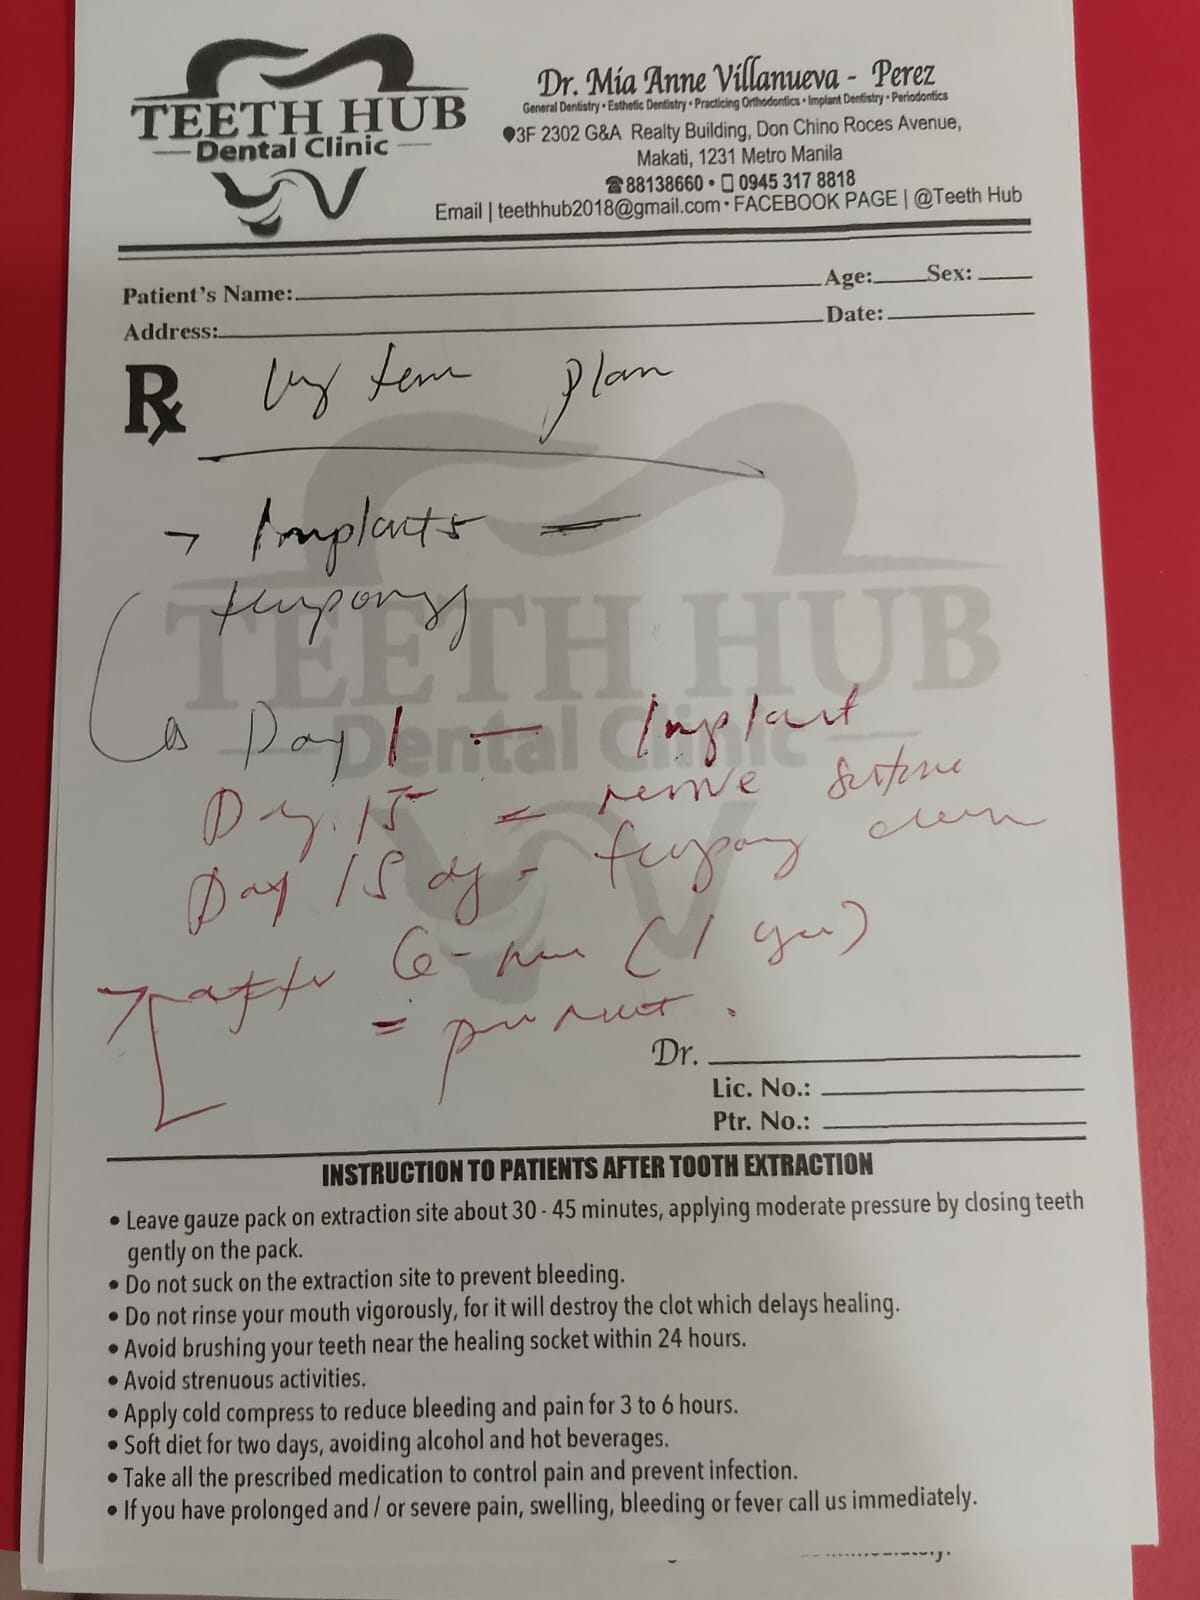 TEETH HUB
Dental Clinic
Dr. Mia Anne Villanueva - Perez
General Dentistry • Esthetic Dentistry • Practicing Orthodontics • Implant Dentistry • Periodontics
3F 2302 G&A Realty Building, Don Chino Roces Avenue,
Makati, 1231 Metro Manila
☎88138660 • 0945 317 8818
Email | teethhub2018@gmail.com • FACEBOOK PAGE | @Teeth Hub
Patient's Name: Age: Sex:
Address: Date:
Rx term plan
→ Implants
temporary
TEETH HUB
Dental Clinic
Day 1 - Implant
Day 15 - remove suture
Day 15 - temporary
after 6 (1 year)
=
Dr.
Lic. No.:
Ptr. No.:
INSTRUCTION TO PATIENTS AFTER TOOTH EXTRACTION
• Leave gauze pack on extraction site about 30 - 45 minutes, applying moderate pressure by closing teeth
gently on the pack.
• Do not suck on the extraction site to prevent bleeding.
• Do not rinse your mouth vigorously, for it will destroy the clot which delays healing.
• Avoid brushing your teeth near the healing socket within 24 hours.
• Avoid strenuous activities.
• Apply cold compress to reduce bleeding and pain for 3 to 6 hours.
• Soft diet for two days, avoiding alcohol and hot beverages.
• Take all the prescribed medication to control pain and prevent infection.
• If you have prolonged and / or severe pain, swelling, bleeding or fever call us immediately.